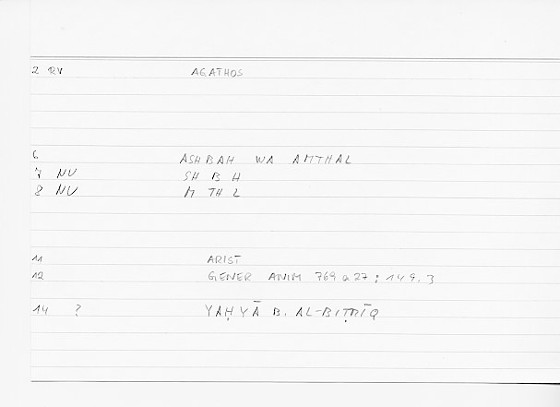 2 RV AGATHOS
6 ASHBAH WA AMTHAL
7 NU SH B H
8 NU M TH L
11 ARIST
12 GENER ANIM 769 a 27 : 149.3
14 ? YAḤYĀ B. AL-BIṬRĪQ